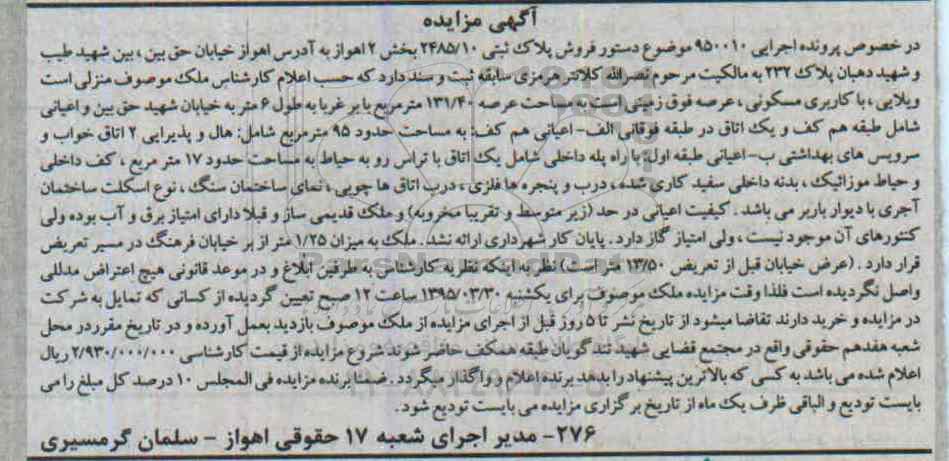 آگهی مزایده
در خصوص پرونده اجرایی ۹۵۰۰۱۰ موضوع دستور فروش پلاک ثبتی ۲۴۸۵/۱۰ بخش ۲ اهواز به آدرس اهواز خیابان حق بین ، بین شهید طیب
و شهید دهبان پلاک ۲۳۲ به مالکیت مرحوم نصرالله کلانتر هرمزی سابقه ثبت و سند دارد که حسب اعلام کارشناس ملک موصوف منزلی است
ویلایی ، با کاربری مسکونی ، عرصه فوق زمینی است به مساحت عرصه ۱۳۱/۴۰ مترمربع با بر غربا به طول ۶ متر به خیابان شهید حق بین و اعیانی
شامل طبقه هم کف و یک اتاق در طبقه فوقانی الف- اعیانی هم کف: به مساحت حدود ۹۵ مترمربع شامل: هال و پذیرایی ۲ اتاق خواب و
سرویس های بهداشتی ب- اعیانی طبقه اول: با راه پله داخلی شامل یک اتاق با تراس رو به حیاط به مساحت حدود ۱۷ متر مربع ، کف داخلی
و حیاط موزائیک ، بدنه داخلی سفید کاری شده ، درب و پنجره ها فلزی ، درب اتاق ها چوبی ، نمای ساختمان سنگ ، نوع اسکلت ساختمان
آجری با دیوار باربر می باشد . کیفیت اعیانی در حد (زیر متوسط و تقریبا مخروبه) و ملک قدیمی ساز و قبلا دارای امتیاز برق و آب بوده ولی
کنتورهای آن موجود نیست ، ولی امتیاز گاز دارد . پایان کار شهرداری ارائه نشد . ملک به میزان ۱/۲۵ متر از بر خیابان فرهنگ در مسیر تعریض
قرار دارد . (عرض خیابان قبل از تعریض ۱۳/۵۰ متر است) نظر به اینکه نظریه کارشناس به طرفین ابلاغ و در موعد قانونی هیچ اعتراض مدللی
واصل نگردیده است فلذا وقت مزایده ملک موصوف برای یکشنبه ۱۳۹۵/۰۳/۳۰ ساعت ۱۲ صبح تعیین گردیده از کسانی که تمایل به شرکت
در مزایده و خرید دارند تقاضا میشود از تاریخ نشر تا ۵ روز قبل از اجرای مزایده از ملک موصوف بازدید بعمل آورده و در تاریخ مقرر در محل
شعبه هفدهم حقوقی واقع در مجتمع قضایی شهید تندگویان طبقه همکف حاضر شوند شروع مزایده از قیمت کارشناسی ۲/۹۳۰/۰۰۰/۰۰۰ ریال
اعلام شده می باشد به کسی که بالاترین پیشنهاد را بدهد برنده اعلام و واگذار میگردد . ضمنا برنده مزایده فی المجلس ۱۰ درصد کل مبلغ را می
بایست تودیع و الباقی ظرف یک ماه از تاریخ برگزاری مزایده می بایست تودیع شود .
۲۷۶- مدیر اجرای شعبه ۱۷ حقوقی اهواز - سلمان گرمسیری